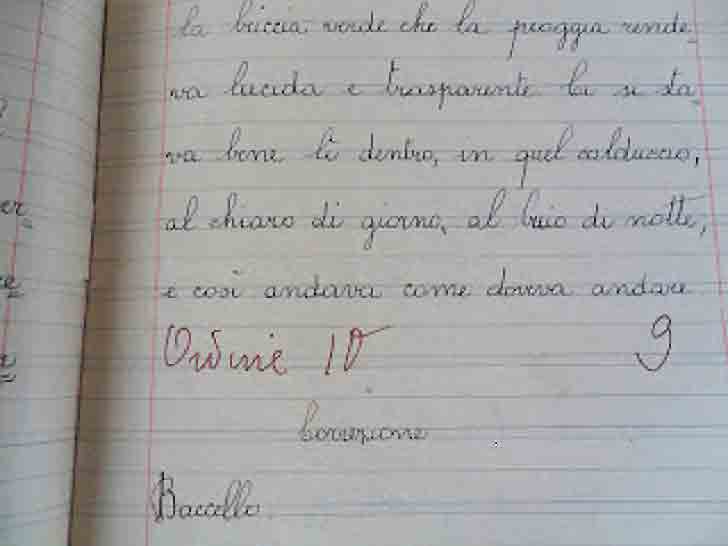 la buccia verde che la pioggia rende-
va lucida e trasparente la si sta-
va bene lì dentro, in quel calduccio,
al chiaro di giorno, al buio di notte,
e così andava come doveva andare
Ordine 10 9
Correzione
Baccello.